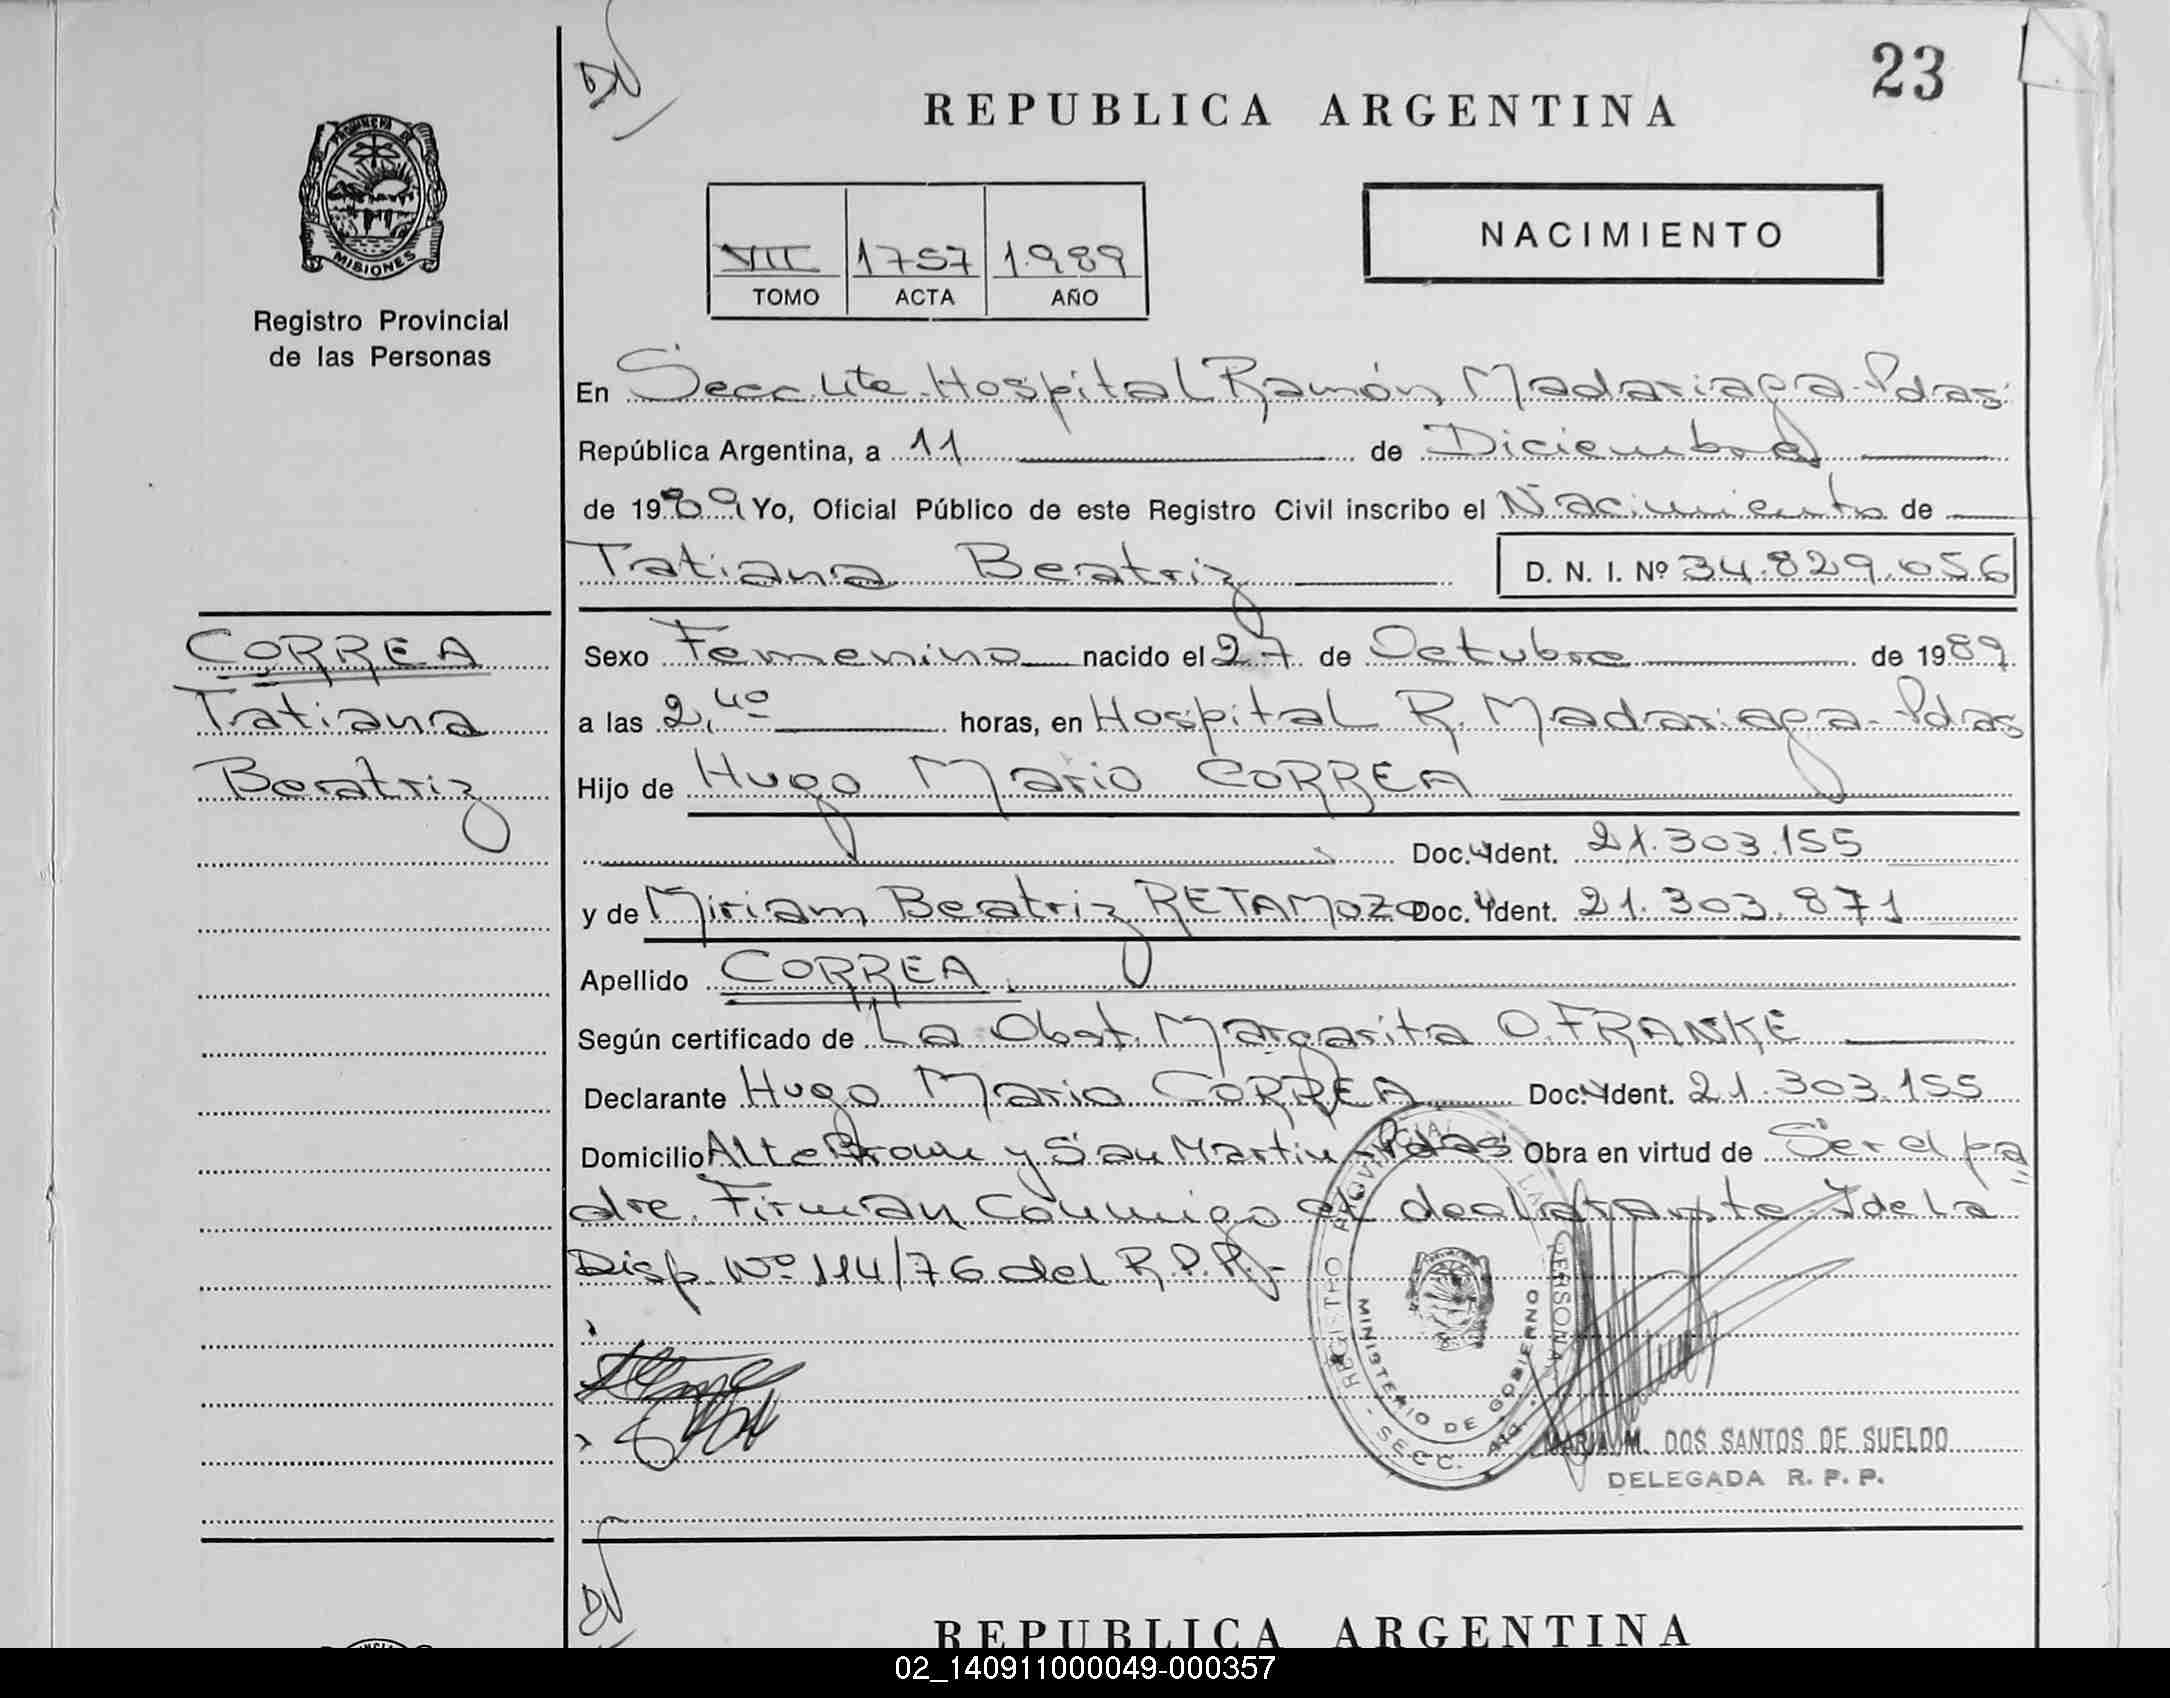 23
REPUBLICA ARGENTINA
PROVINCIA DE
MISIONES
Registro Provincial
de las Personas
VII 1757 1.989
TOMO ACTA AÑO
NACIMIENTO
En Secc. Hospital Ramón Madariaga-Pdas
República Argentina, a 11 de Diciembre
de 1989 Yo, Oficial Público de este Registro Civil inscribo el Nacimiento de
Tatiana Beatriz D. N. I. Nº 34.829.056
CORREA
Tatiana
Beatriz
Sexo Femenino nacido el 27 de Octubre de 1989
a las 2,40 horas, en Hospital R. Madariaga-Pdas
Hijo de Hugo Mario CORREA
Doc. Ident. 21.303.155
y de Miriam Beatriz RETAMOZO Doc. Ident. 21.303.871
Apellido CORREA.
Según certificado de La Obst. Margarita O. FRANKE
Declarante Hugo Mario CORREA Doc. Ident. 21.303.155
Domicilio Alte Brown y San Martin-Pdas Obra en virtud de Ser el pa
dre. Firman Conmigo el declarante y de La
Disp. Nº 114/76 del R.P.P.-
REGISTRO PROVINCIAL
MINISTERIO DE GOBIERNO
MARIA M. DOS SANTOS DE SUELDO
DELEGADA R. P. P.
REPUBLICA ARGENTINA
02_140911000049-000357